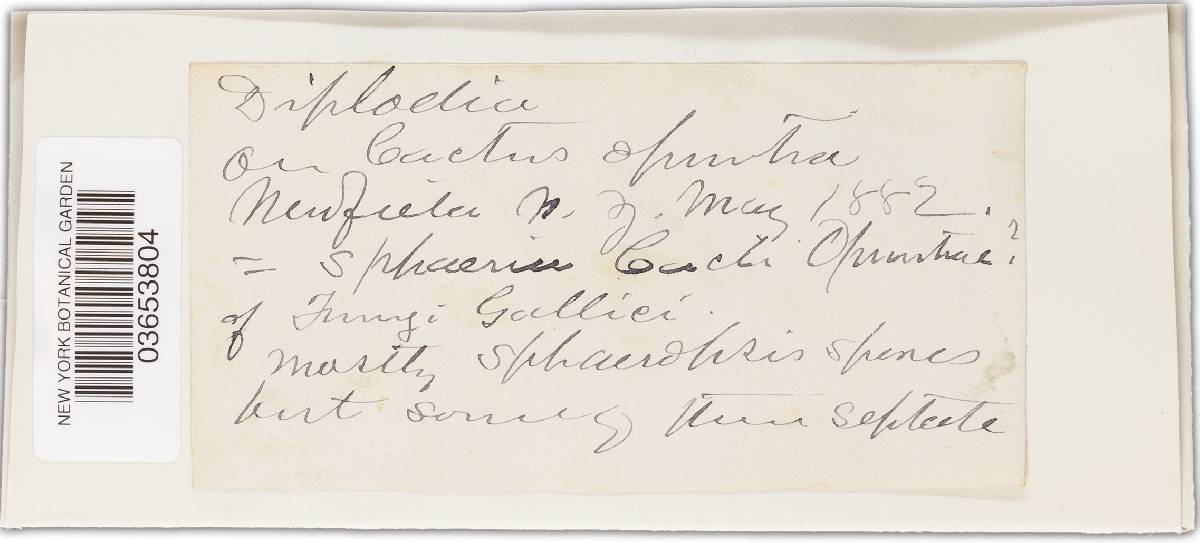 NEW YORK BOTANICAL GARDEN
03653804
Diplodia
on Cactus opuntia
Newfield N. J. May 1882.
= Sphaeria Cacti Opuntiae?
of Fungi Gallici.
mostly sphaeropsis spores
but some of them septate